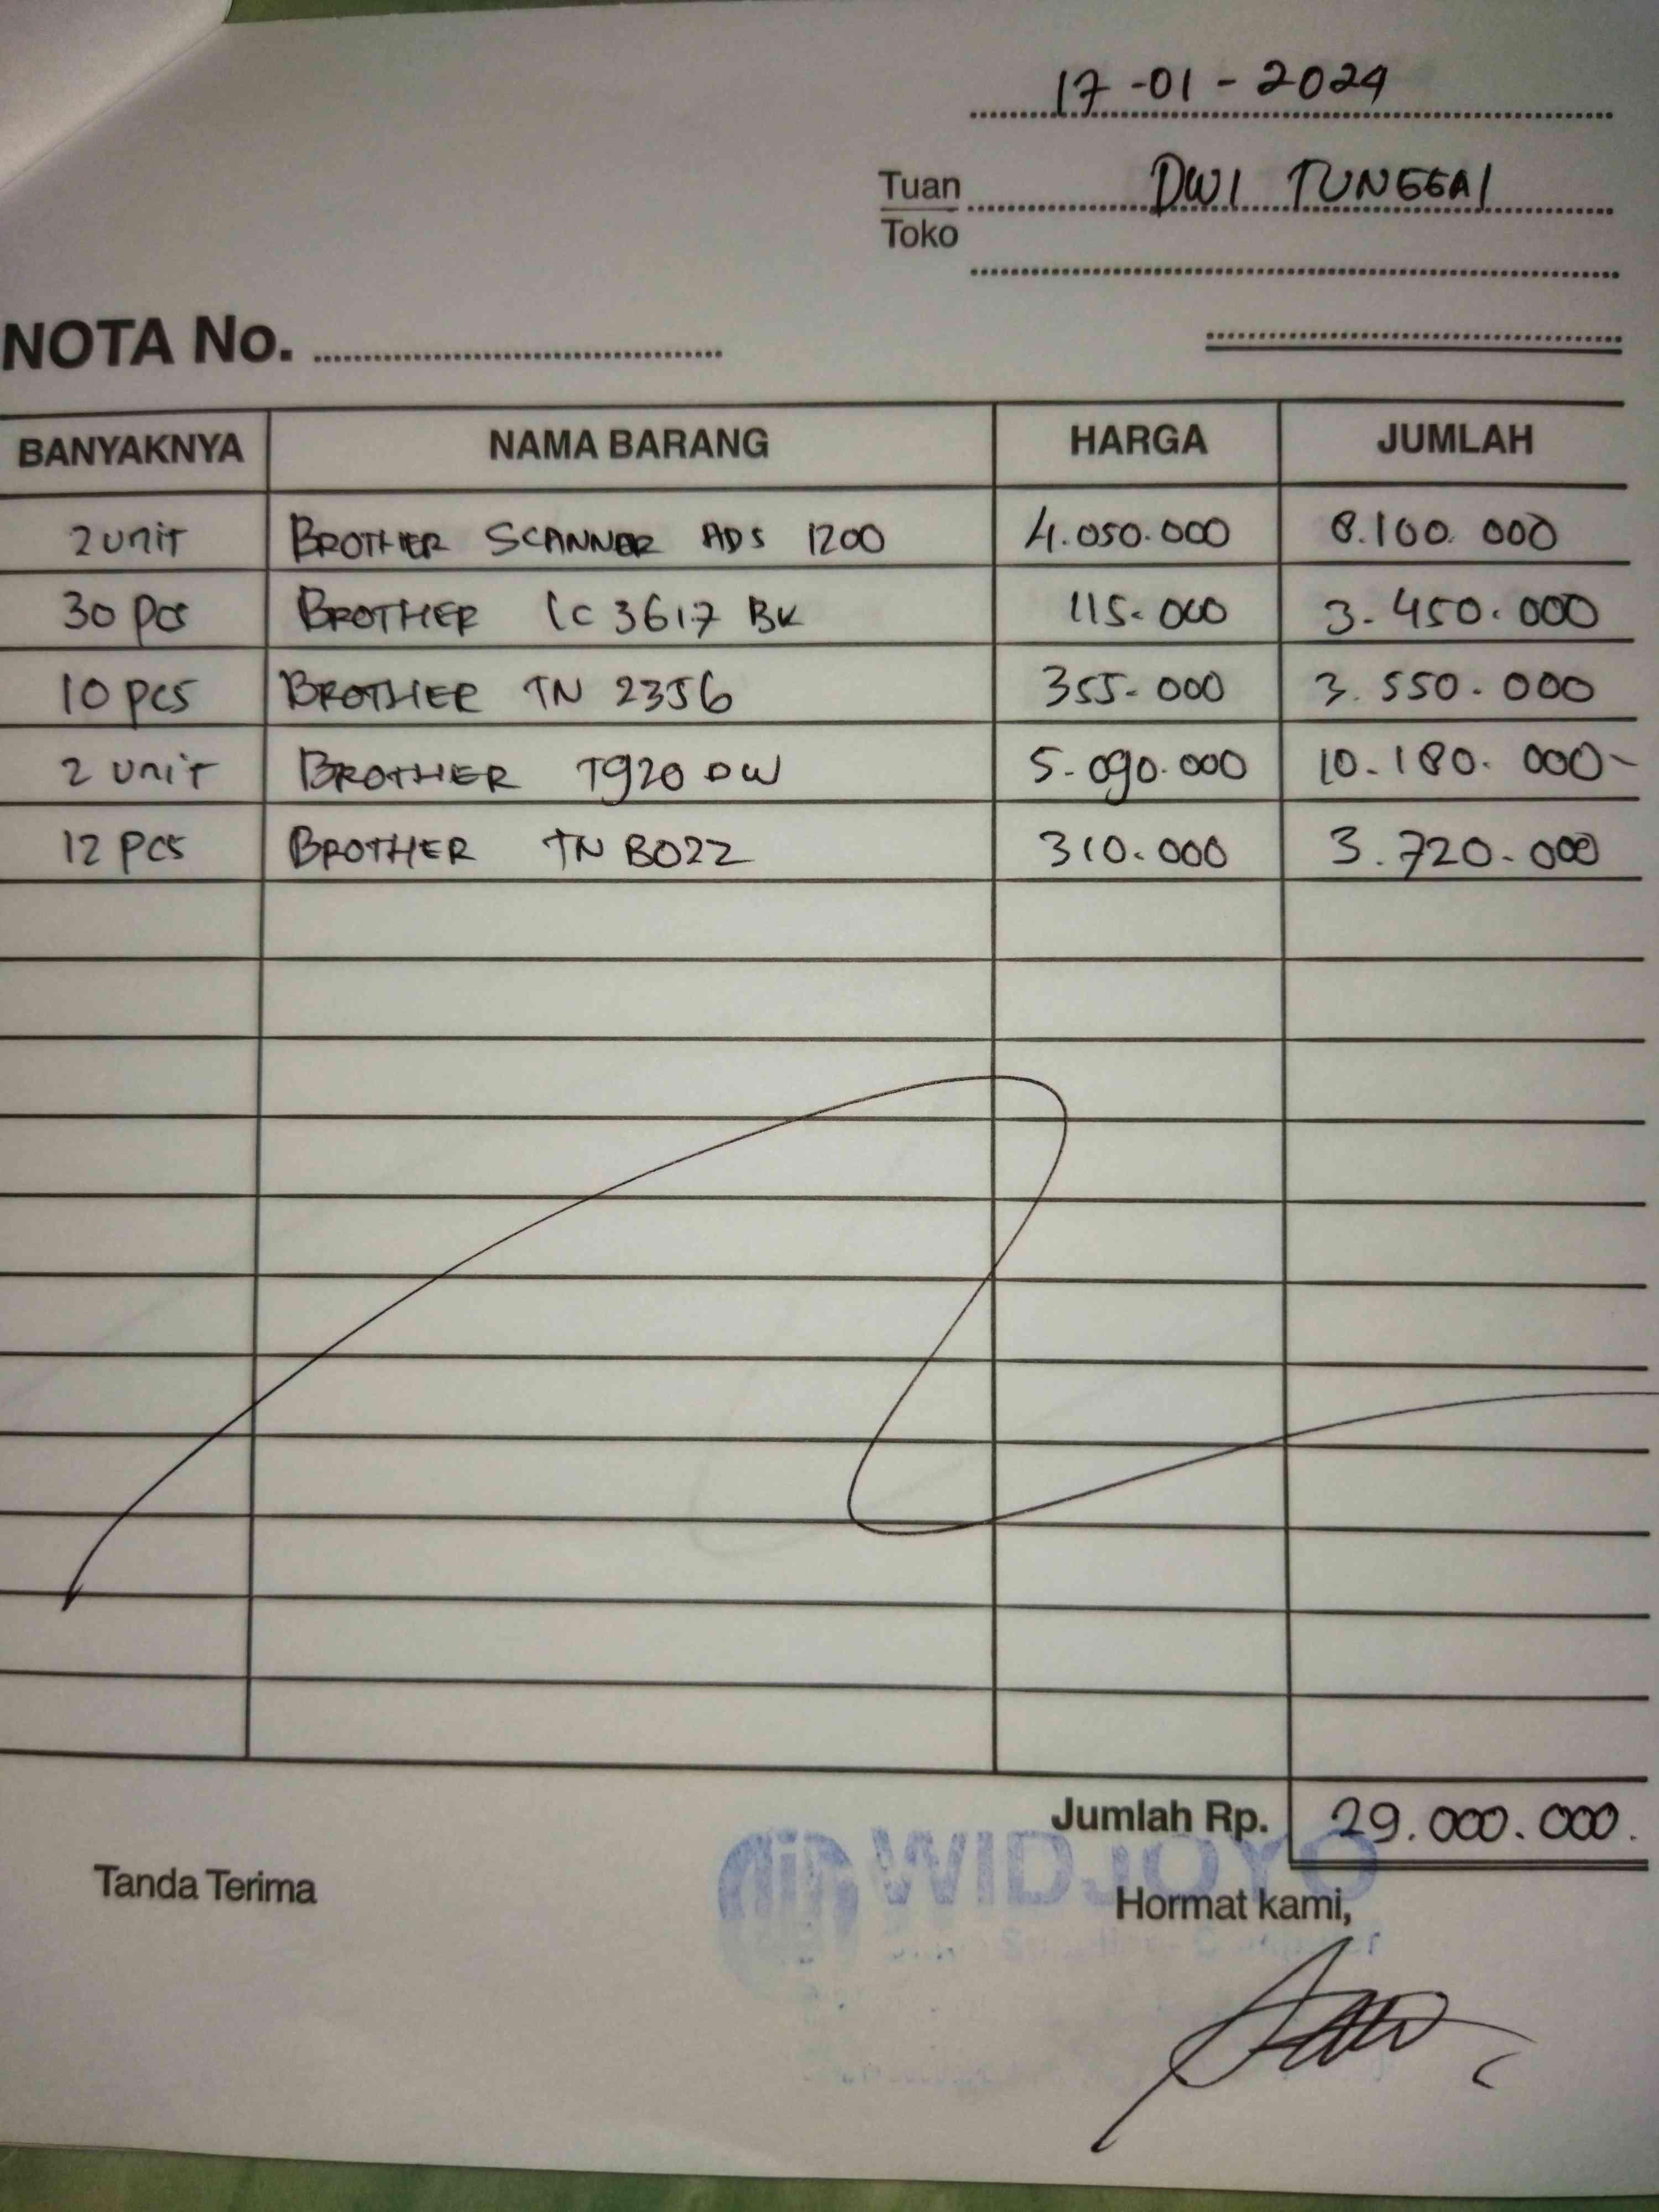 17-01-2024
Tuan DWI TUNGGAl
Toko
NOTA No.
BANYAKNYA NAMA BARANG HARGA JUMLAH
2 unit BROTHER SCANNER ADS 1200 4.050.000 8.100.000
30 pcs BROTHER LC 3617 BK 115.000 3.450.000
10 pcs BROTHER TN 2356 355.000 3.550.000
2 unit BROTHER T920 DW 5.090.000 10.180.000-
12 pcs BROTHER TN B022 310.000 3.720.000
Jumlah Rp. 29.000.000.
WIDJOYO
Tanda Terima Hormat kami,